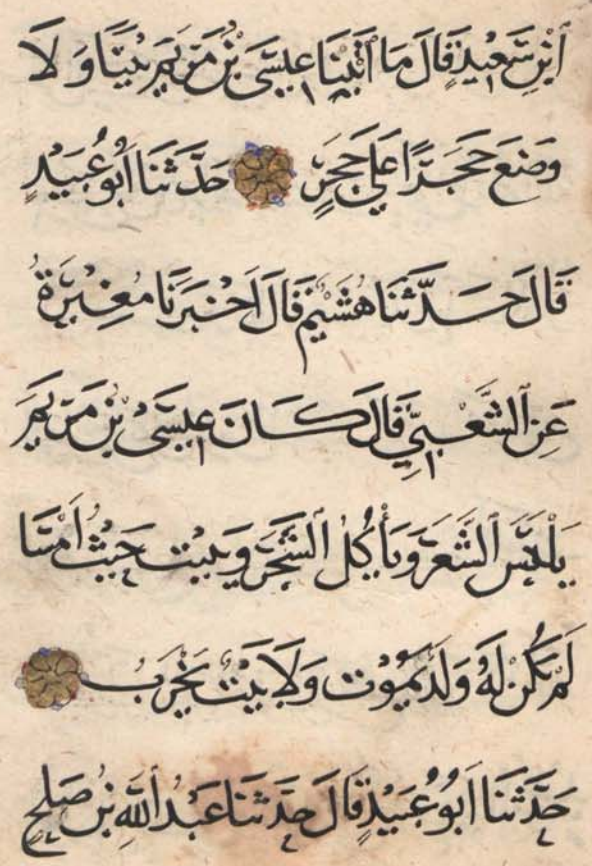 ٱبْنِ سَعِيدٍ قَالَ مَا ٱبْتَنَا عِيسَى بْنُ مَرْيَمَ بَيْتًا وَلَا
وَضَعَ حَجَرًا عَلَى حَجَرٍ حَدَّثَنَا أَبُو عُبَيْدٍ
قَالَ حَدَّثَنَا هُشَيْمٌ قَالَ أَخْبَرَنَا مُغِيْرَةُ
عَنِ ٱلشَّعْبِيِّ قَالَ كَانَ عِيسَى بْنُ مَرْيَمَ
يَلْبَسُ ٱلشَّعَرَ وَيَأْكُلُ ٱلشَّجَرَ وَيَبِيْتُ حَيْثُ أَمْسَا
لَمْ يَكُنْ لَهُ وَلَدٌ يَمُوْتُ وَلَا بَيْتٌ يَخْرَبُ
حَدَّثَنَا أَبُو عُبَيْدٍ قَالَ حَدَّثَنَا عَبْدُ ٱللَّهِ بْنُ صَلِحٍ